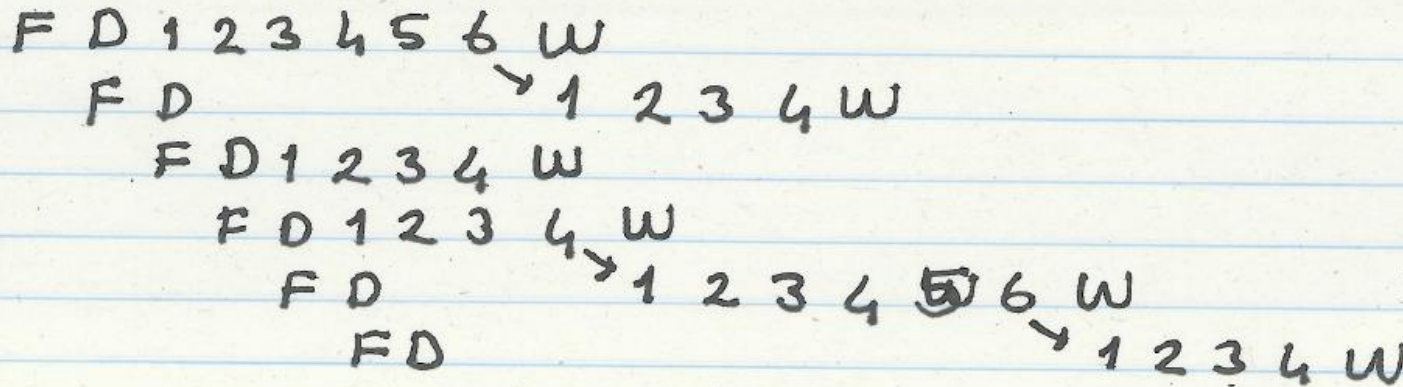 F D 1 2 3 4 5 6 W
F D → 1 2 3 4 W
F D 1 2 3 4 W
F D 1 2 3 4 W
F D → 1 2 3 4 5 6 W
F D → 1 2 3 4 W